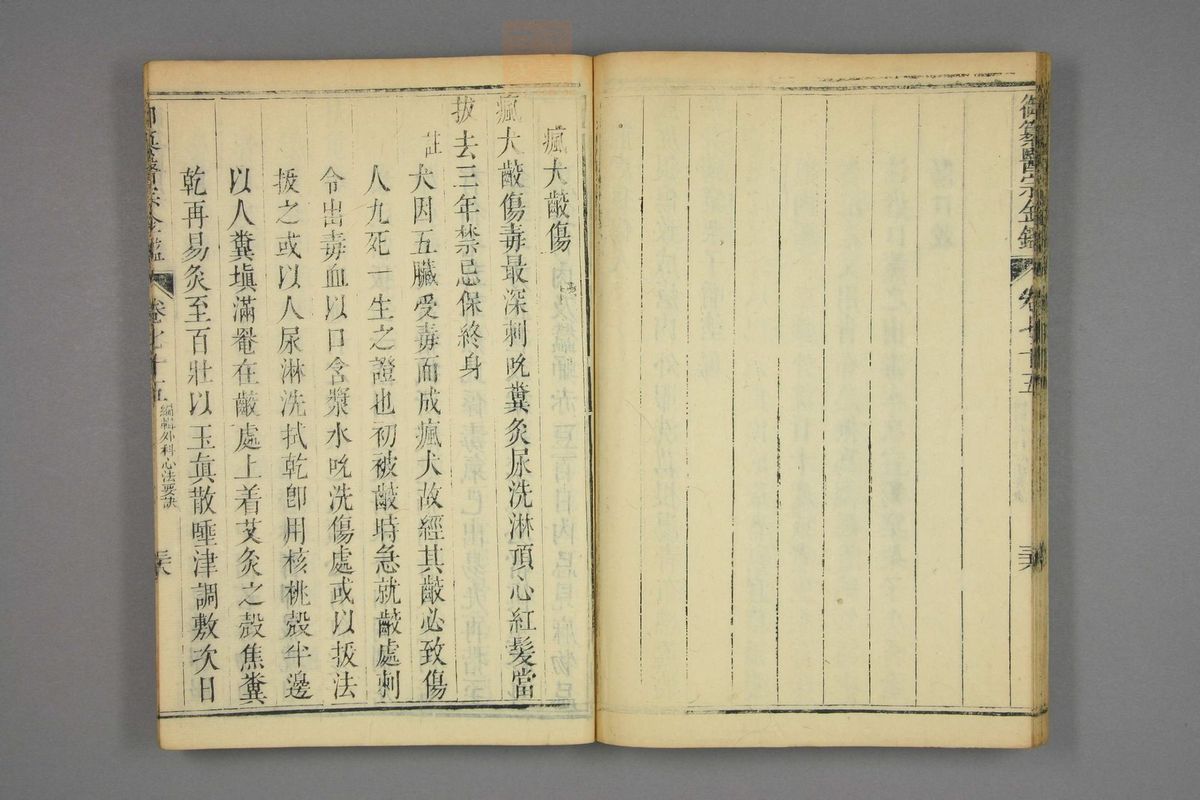 御纂醫宗金鑑
卷七十五
三十六
瘋犬齩傷
瘋犬齩傷毒最深刺吮糞灸尿洗淋頂心紅髮當
拔去三年禁忌保終身
註犬因五臟受毒而成瘋犬故經其齩必致傷
人九死一生之證也初被齩時急就齩處刺
令出毒血以口含漿水吮洗傷處或以拔法
拔之或以人尿淋洗拭乾卽用核桃殼半邊
以人糞塡滿罨在齩處上着艾灸之殼焦糞
乾再易灸至百壯以玉眞散唾津調敷次日
御纂醫宗金鑑
卷七十五
編輯外科心法要訣